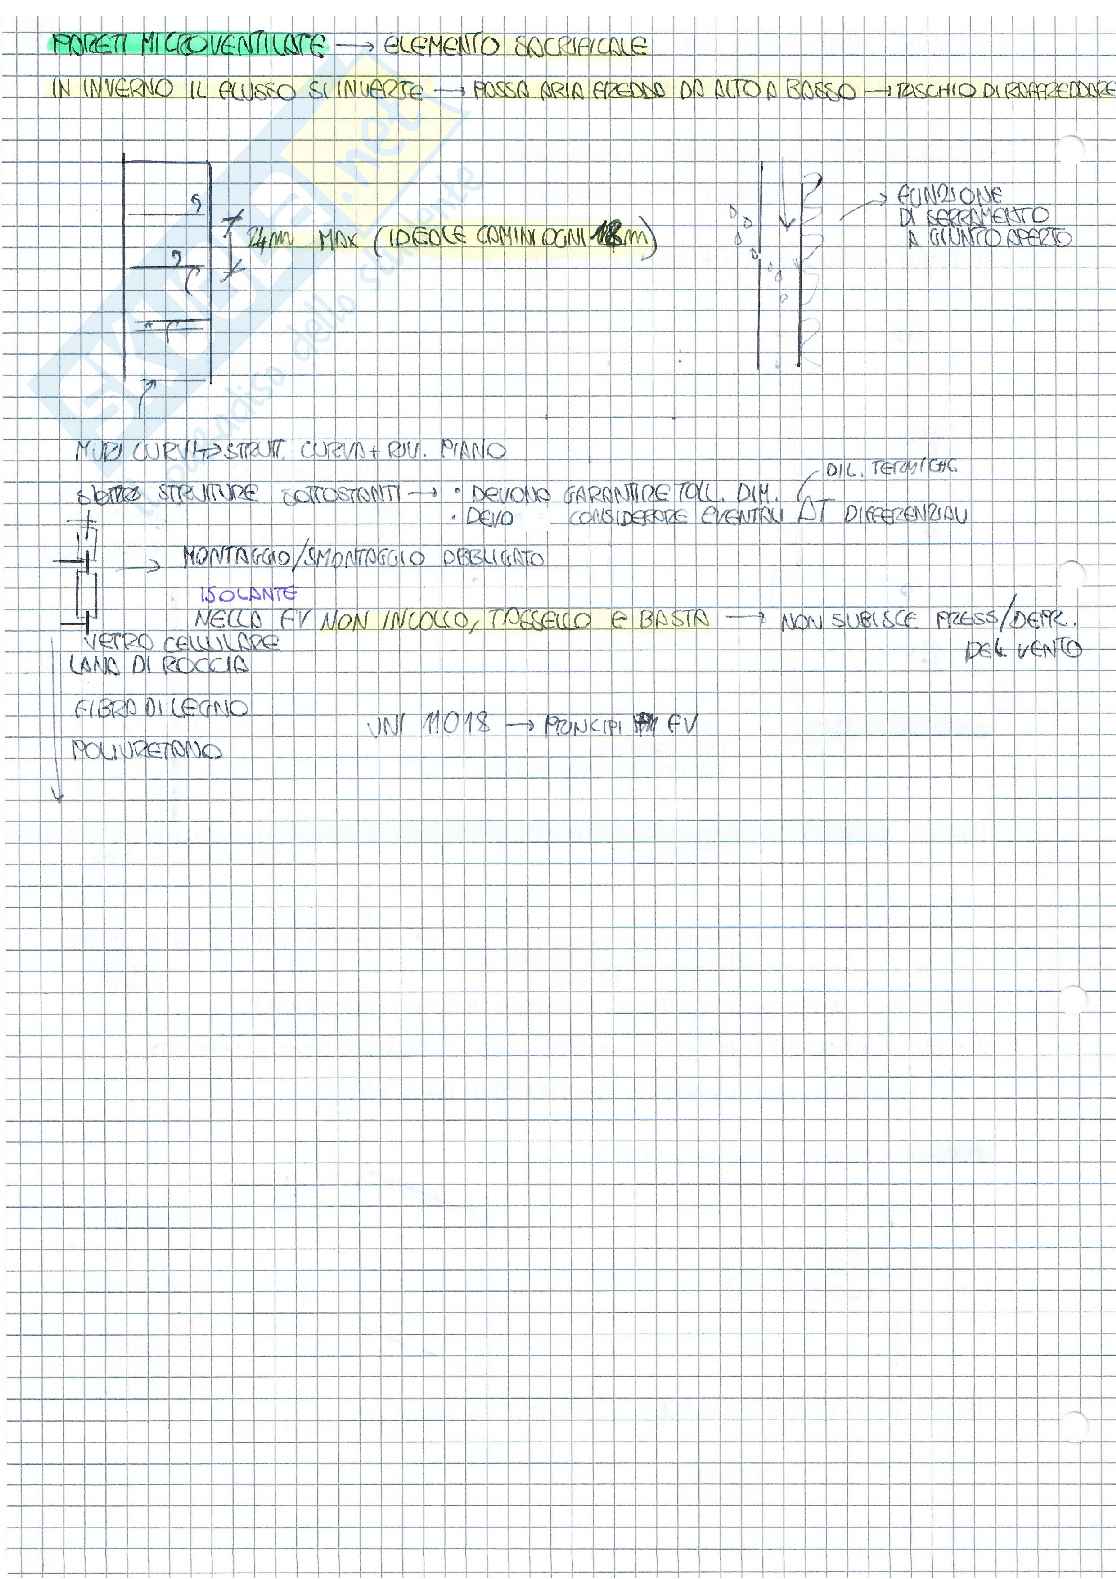 PARETI MICROVENTILATE → ELEMENTO SACRIFICALE
IN INVERNO IL FLUSSO SI INVERTE → PASSA ARIA FREDDA DA ALTO A BASSO → RISCHIO DI RAFFREDDARE
24m MAX (IDEALE CAMINI OGNI 18m)
FUNZIONE
DI SERRAMENTO
A GIUNTO APERTO
MURI CURVI → STRUTT. CURVA + RIV. PIANO
DIL. TERMICHE
STRUTTURE SOTTOSTANTI → · DEVONO GARANTIRE TOLL. DIM.
· DEVO CONSIDERARE EVENTUALI ΔT DIFFERENZIALI
→ MONTAGGIO/SMONTAGGIO OBBLIGATO
ISOLANTE
NELLA FV NON INCOLLO, TASSELLO E BASTA → NON SUBISCE PRESS/DEPR.
DEL VENTO
VETRO CELLULARE
LANA DI ROCCIA
FIBRA DI LEGNO
UNI 11018 → PRINCIPI FV
POLIURETANO
SKUOLA.net
il paradiso dello studente